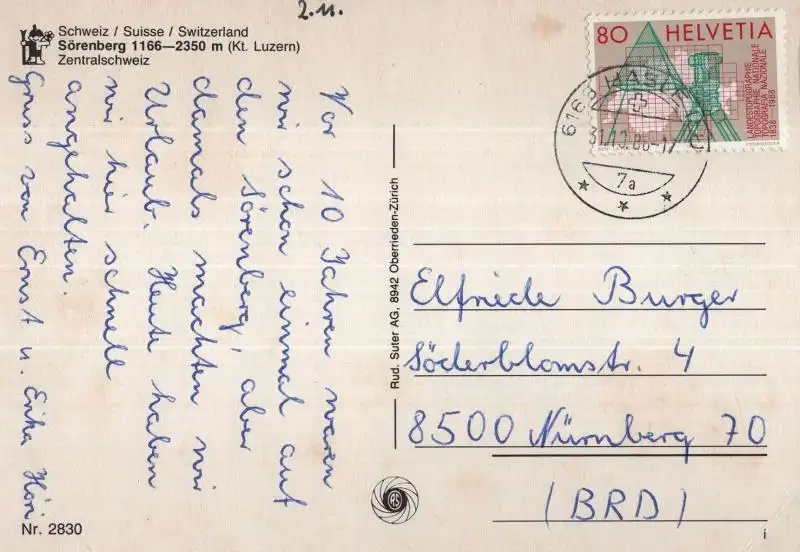 2.11.
Schweiz / Suisse / Switzerland
Sörenberg 1166—2350 m (Kt. Luzern)
Zentralschweiz
Vor 10 Jahren waren
wir schon einmal auf
den Sörenberg, aber
damals machten wir
Urlaub. Heute haben
wir hier schnell
angehalten.
Gruss von Ernst u. Erika
Nr. 2830
Rud. Suter AG, 8942 Oberrieden-Zürich
RS
80 HELVETIA
LANDESTOPOGRAPHIE
TOPOGRAPHIE NATIONALE
TOPOGRAFIA NAZIONALE
1838 – 1988
COURVOISIER
HASLE
7a
Elfriede Burger
Söderblomstr. 4
8500 Nürnberg 70
(BRD)
i